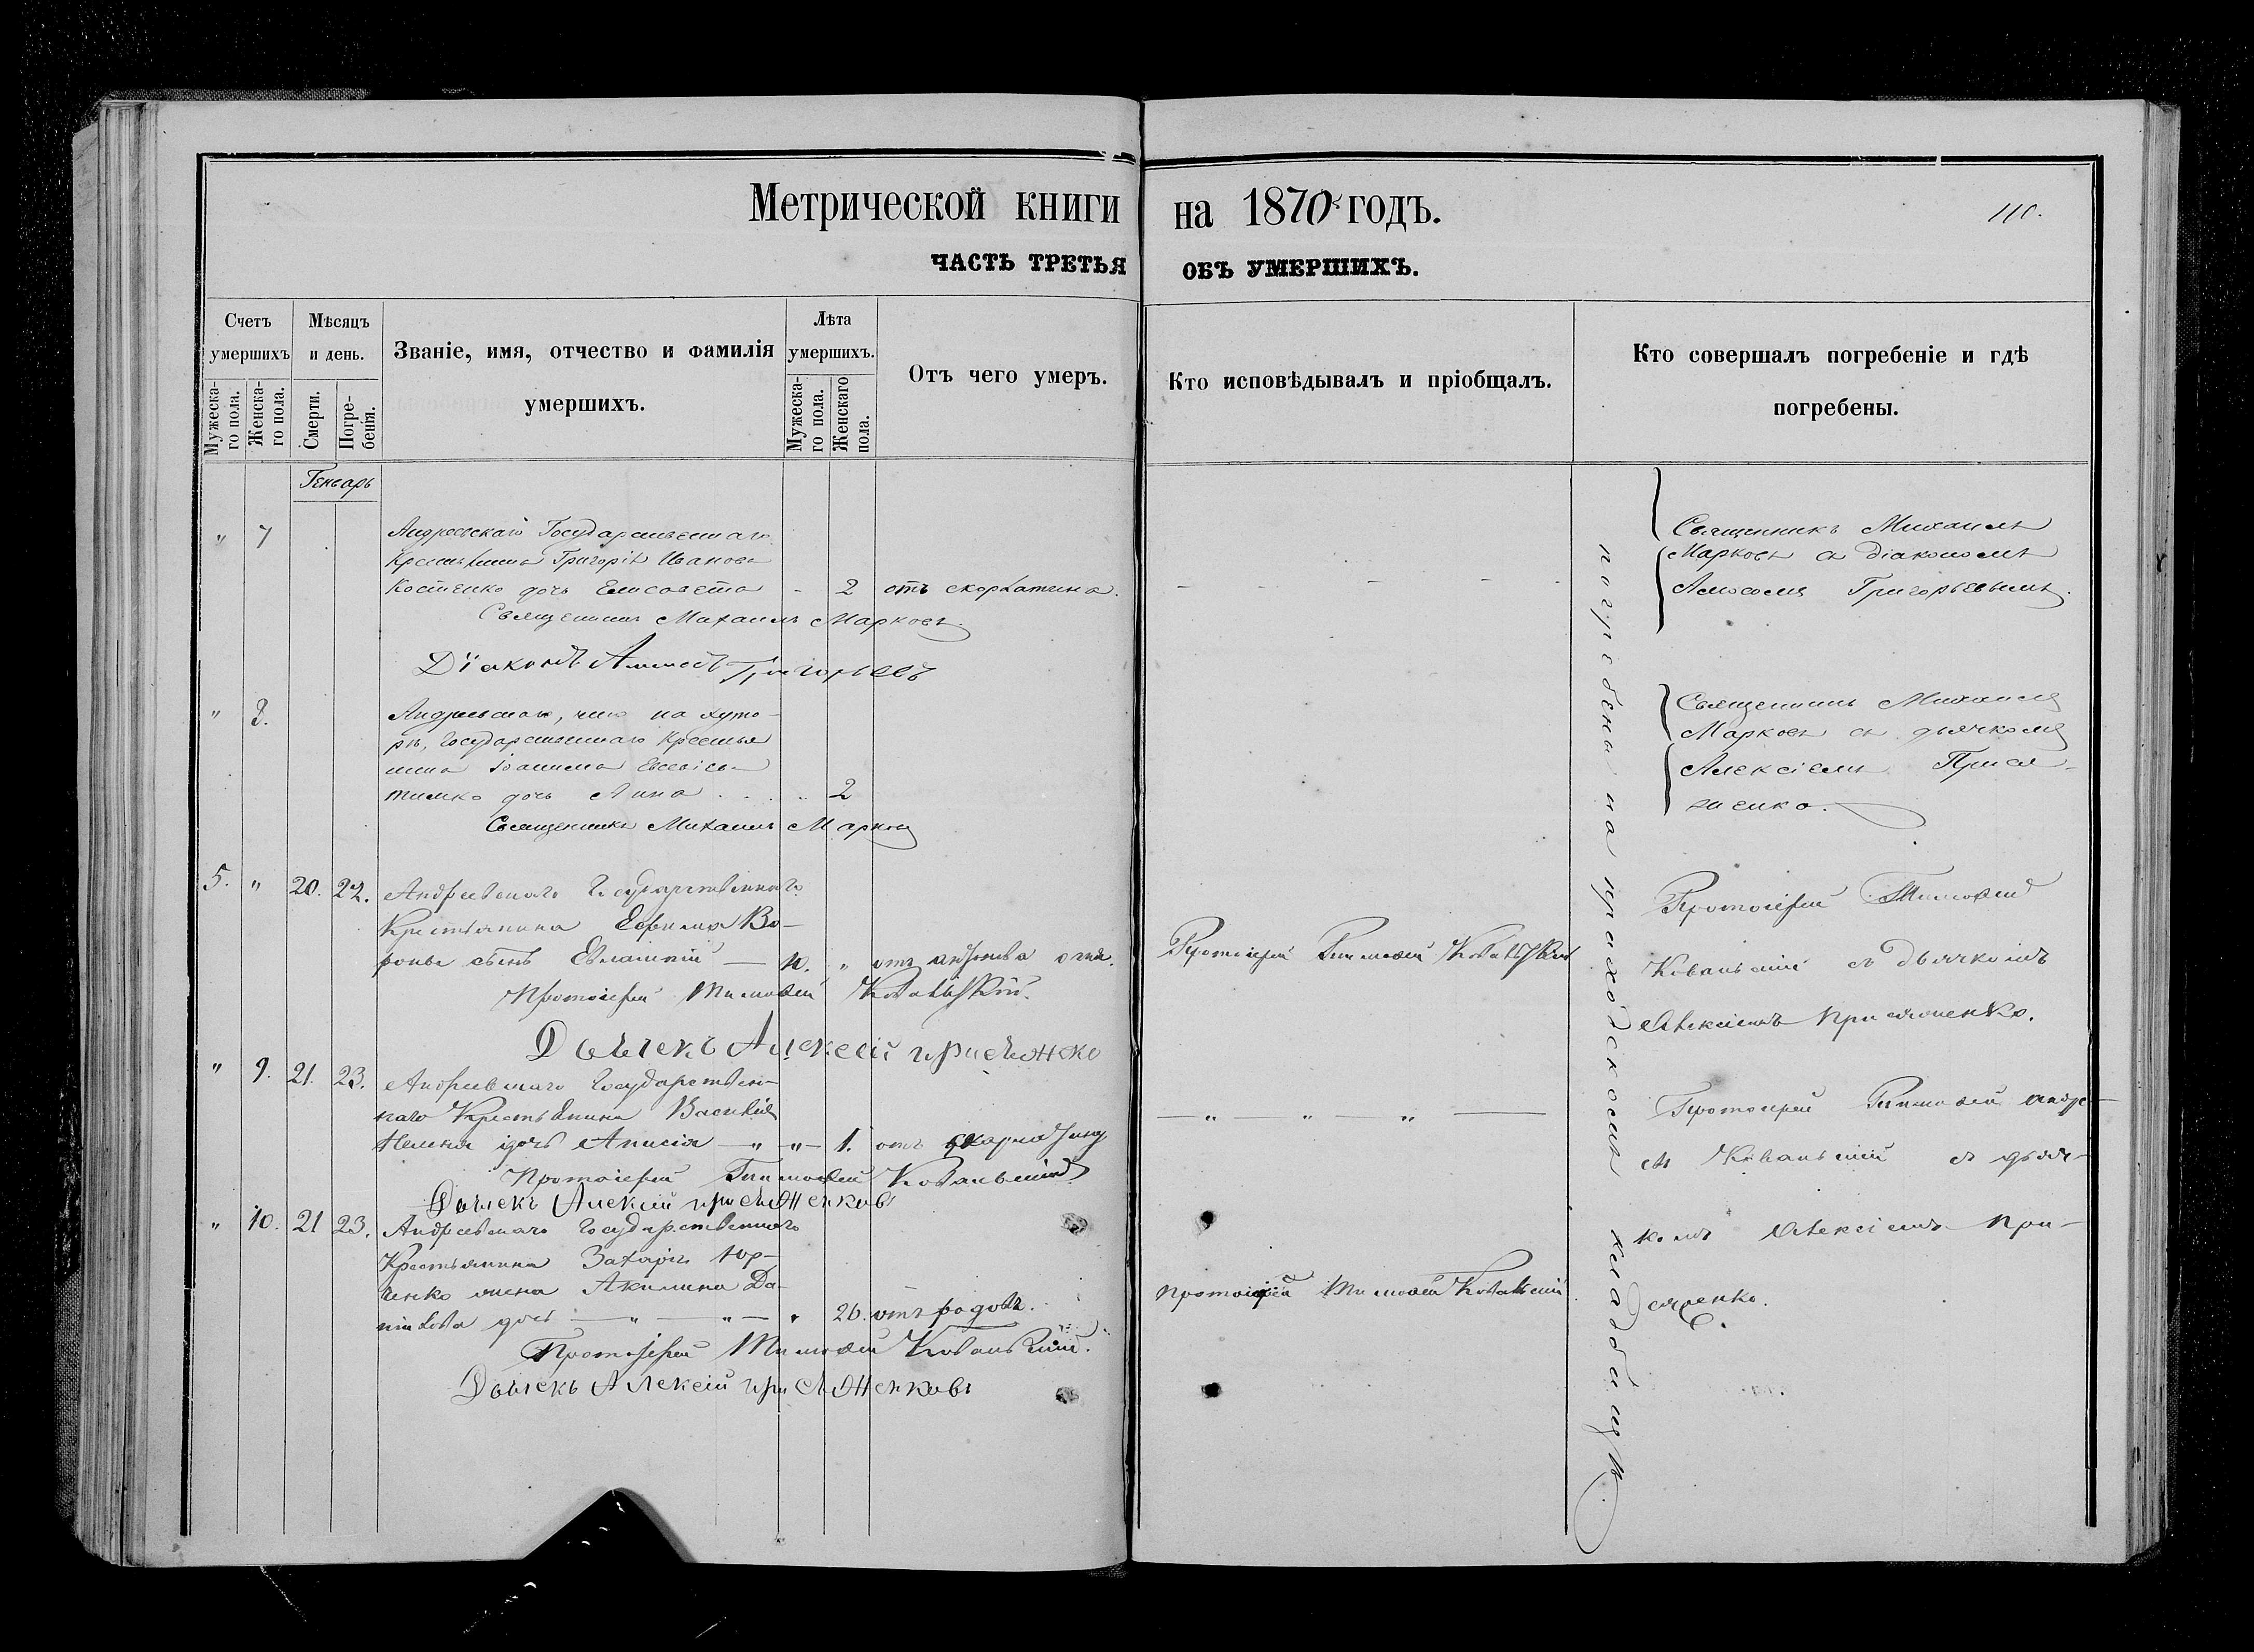 Метрической книги на 1870 годъ.
110.
ЧАСТЬ ТРЕТЬЯ ОБЪ УМЕРШИХЪ.
Счетъ умершихъ
Мужеска-го пола.
Женска-го пола.
Мѣсяцъ и день.
Смерти.
Погре-бенія.
Званіе, имя, отчество и фамилія умершихъ.
Лѣта умершихъ.
Мужеска-го пола.
Женскаго пола.
Отъ чего умеръ.
Кто исповѣдывалъ и пріобщалъ.
Кто совершалъ погребеніе и гдѣ погребены.
Генварь
" 7
Андреевскаго Государственнаго
Крестьянина Григорія Иванова
Костенко дочь Елисавета - 2 отъ скорлатина.
Священникъ Михаилъ Марковъ
Діаконъ Аммосъ Григорьевъ
Священникъ Михаилъ
Марковъ съ діакономъ
Амосомъ Григорьевымъ.
" 8.
Андреевскаго, что на хуто-
рѣ, Государственнаго Крестья
нина
дочь Анна 2
Священникъ Михаилъ Марковъ
Священникъ Михаилъ
Марковъ съ дьячкомъ
Алексіемъ Прися-
женко.
5. " 20. 22. Андреевскаго Государственнаго
Крестьянина Ефима Во-
роны сынъ Евлампій — 10. " отъ антонова огня.
Протоіерей Тимофей Ковальскій.
Дьячекъ Алексій присяженко
Протоіерей Тимофей Ковальскій
Протоіерей Тимофей
Ковальскій съ дьячкомъ
Алексіемъ Присяженко.
" 9. 21. 23. Андреевскаго Государствен-
наго Крестьянина Василія
дочь Анисія — " — " — 1. отъ
Протоіерей Тимофей Ковальскій
Дьячекъ Алексій присяженковъ
— " — " — " —
Протоіерей Тимофей Андре-
евъ Ковальскій съ дьяч-
комъ Алексіемъ При-
сяженко.
" 10. 21 23. Андреевскаго Государственнаго
Крестьянина Захарія Юр-
ченко жена Акилина Да-
нилова дочь — " — " — " 26. отъ родовъ.
Протоіерей Тимофей Ковальскій.
Дьячекъ Алексій присяженковъ
протоіерей Тимофей Ковальскій
погребены на приходскомъ кладбищѣ.